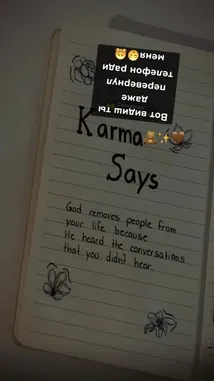 Вот видишь ты
даже
перевернул
телефон ради
меня🤭🤭
Karma
Says
God removes people from
your life because
He heard the conversations
that you didn't hear.